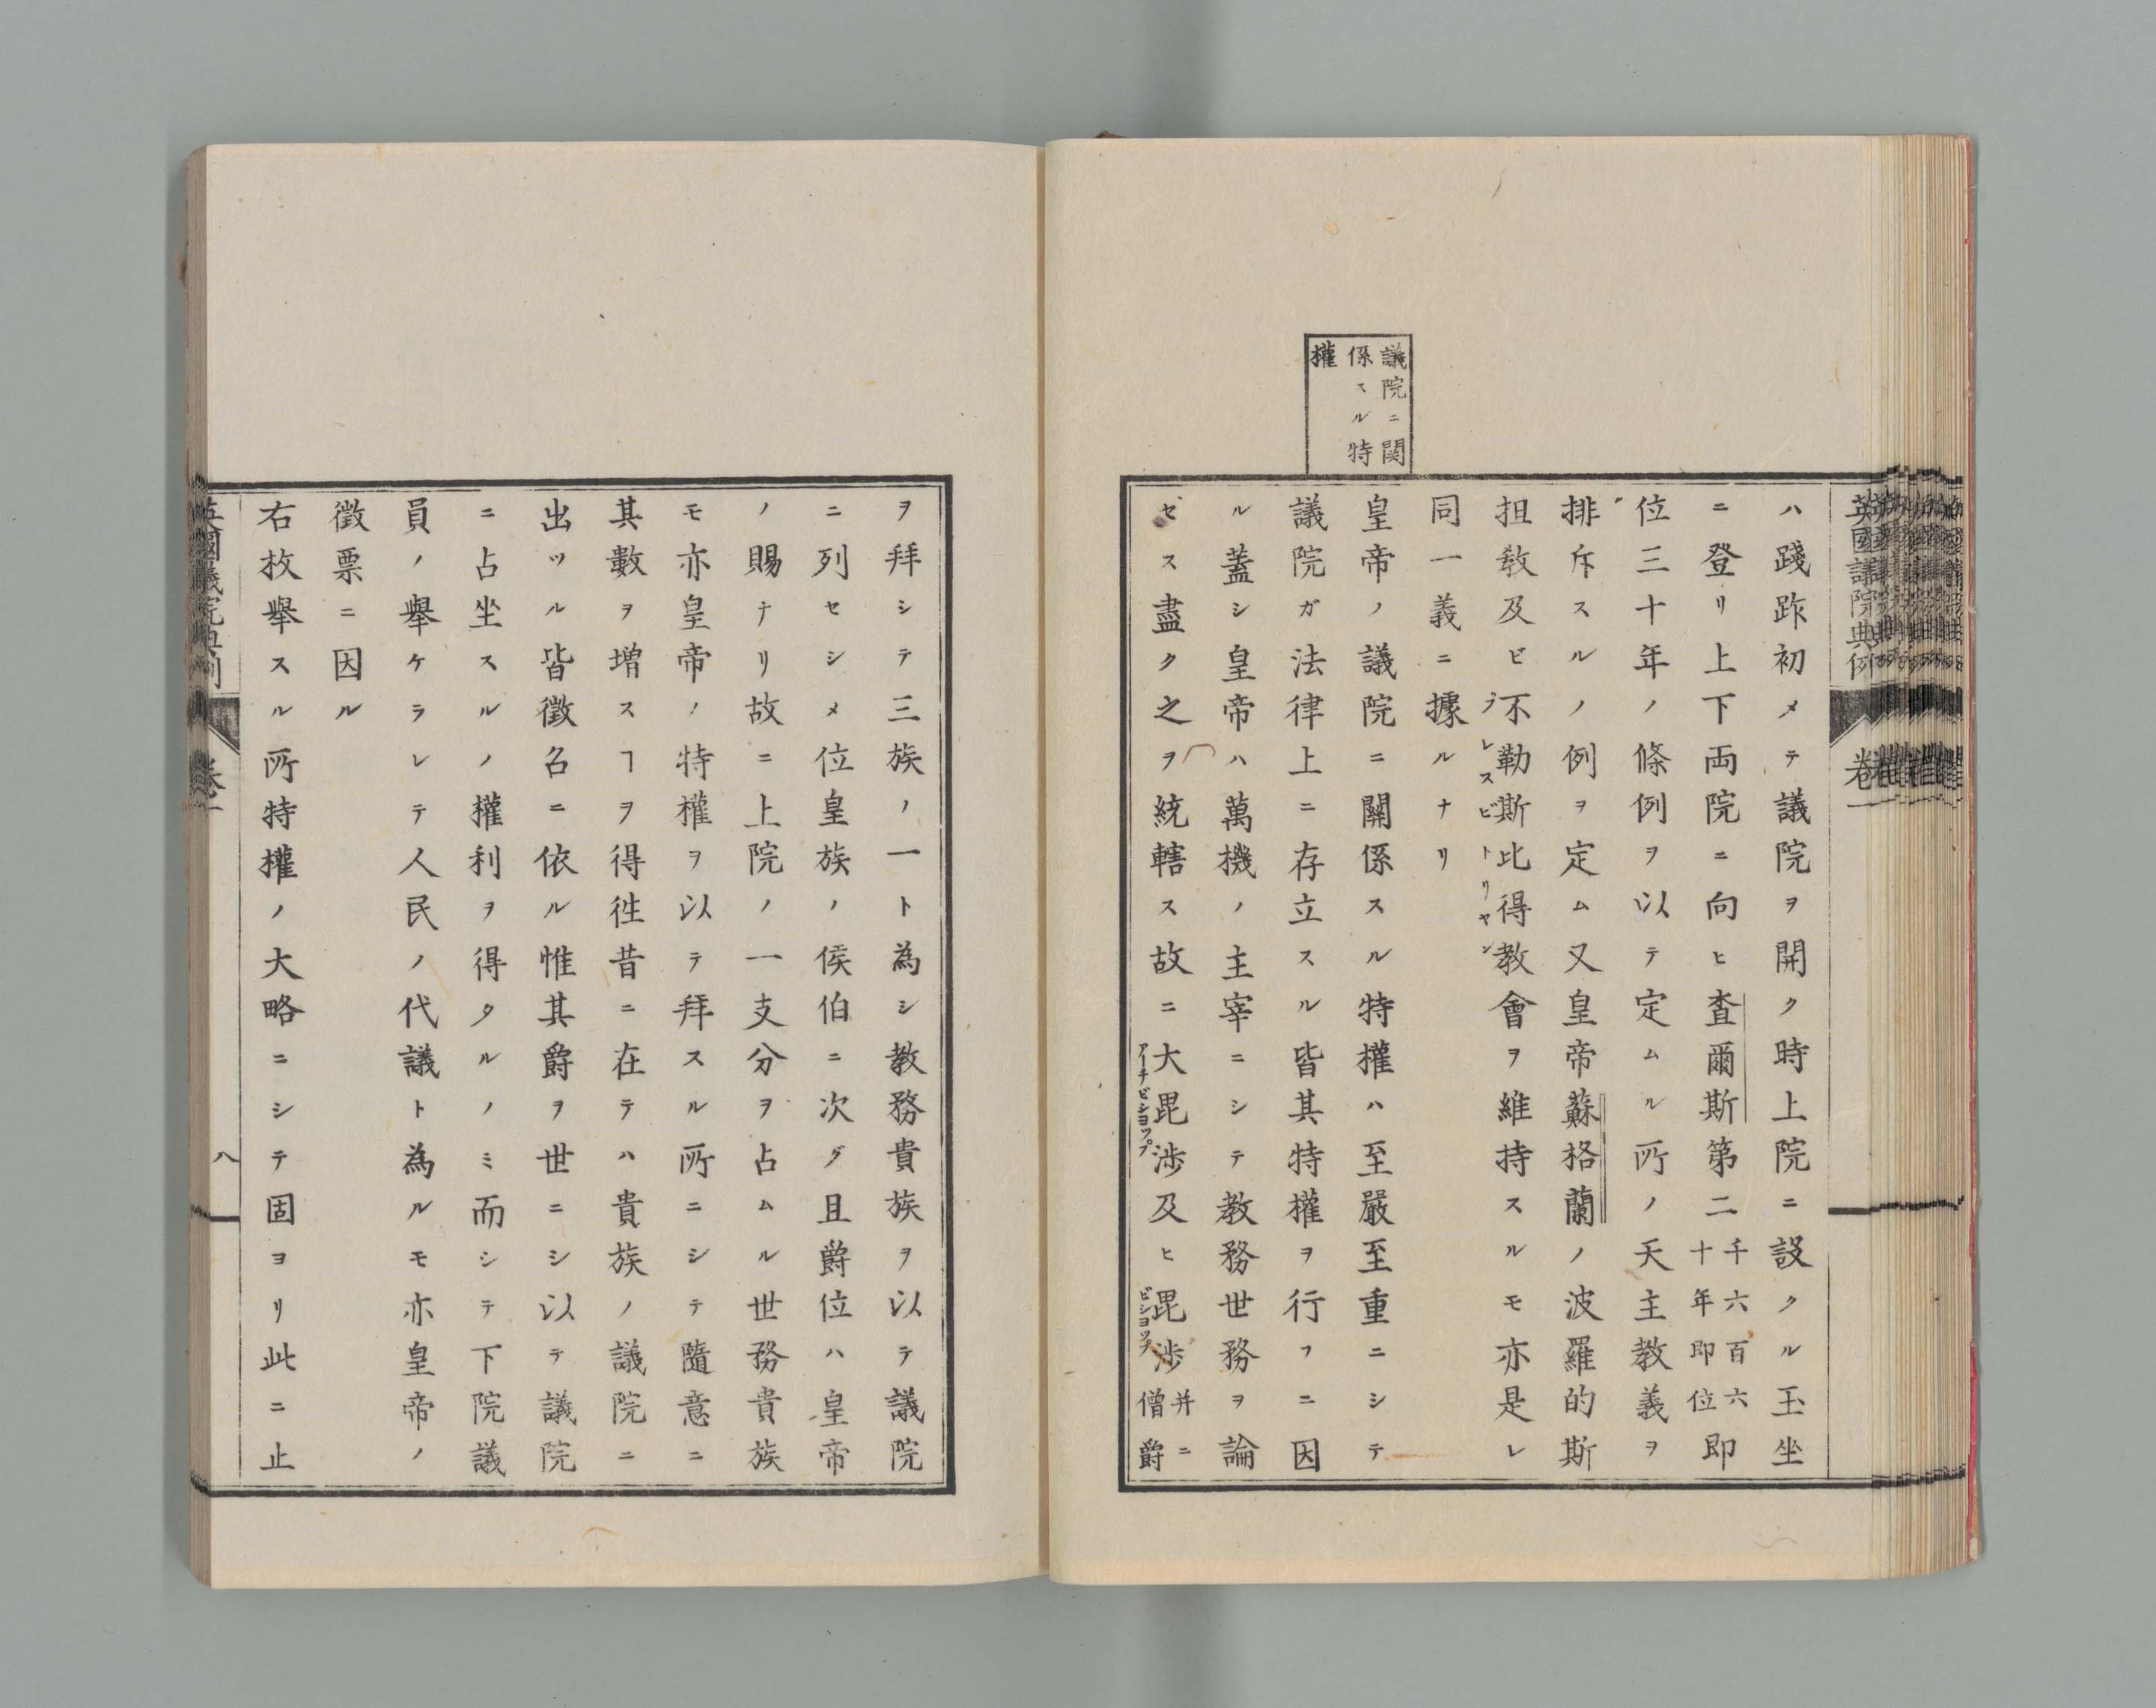 英國議院典例
卷一
ハ踐阼初メテ議院ヲ開ク時上院ニ設クル玉坐
ニ登リ上下両院ニ向ヒ査爾斯第二千六百六十年即位即
位三十年ノ條例ヲ以テ定ムル所ノ天主教義ヲ
排斥スルノ例ヲ定ム又皇帝蘇格蘭ノ波羅的斯
担教及ビ不勒斯比得教會ヲ維持スルモ亦是レ
プレスビトリヤン
同一義ニ據ルナリ
議院ニ関
係スル特
權
皇帝ノ議院ニ關係スル特權ハ至嚴至重ニシテ
議院ガ法律上ニ存立スル皆其特權ヲ行フニ因
ル蓋シ皇帝ハ萬機ノ主宰ニシテ教務世務ヲ論
ゼス盡ク之ヲ統轄ス故ニ大毘渉及ヒ毘渉并ニ僧爵
アーチビショップ
ビショップ
ヲ拜シテ三族ノ一ト為シ教務貴族ヲ以テ議院
ニ列セシメ位皇族ノ侯伯ニ次グ且爵位ハ皇帝
ノ賜ナリ故ニ上院ノ一支分ヲ占ムル世務貴族
モ亦皇帝ノ特權ヲ以テ拜スル所ニシテ隨意ニ
其數ヲ增スヿヲ得徃昔ニ在テハ貴族ノ議院ニ
出ツル皆徵名ニ依ル惟其爵ヲ世ニシ以テ議院
ニ占坐スルノ權利ヲ得タルノミ而シテ下院議
員ノ舉ケラレテ人民ノ代議ト為ルモ亦皇帝ノ
徵票ニ因ル
右枚舉スル所特權ノ大略ニシテ固ヨリ此ニ止
英國議院典例
卷一
八